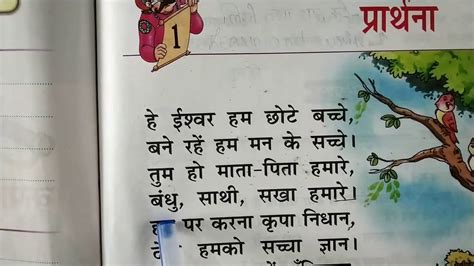 1
प्रार्थना
हे ईश्वर हम छोटे बच्चे,
बने रहें हम मन के सच्चे।
तुम हो माता-पिता हमारे,
बंधु, साथी, सखा हमारे।
पर करना कृपा निधान,
हमको सच्चा ज्ञान।